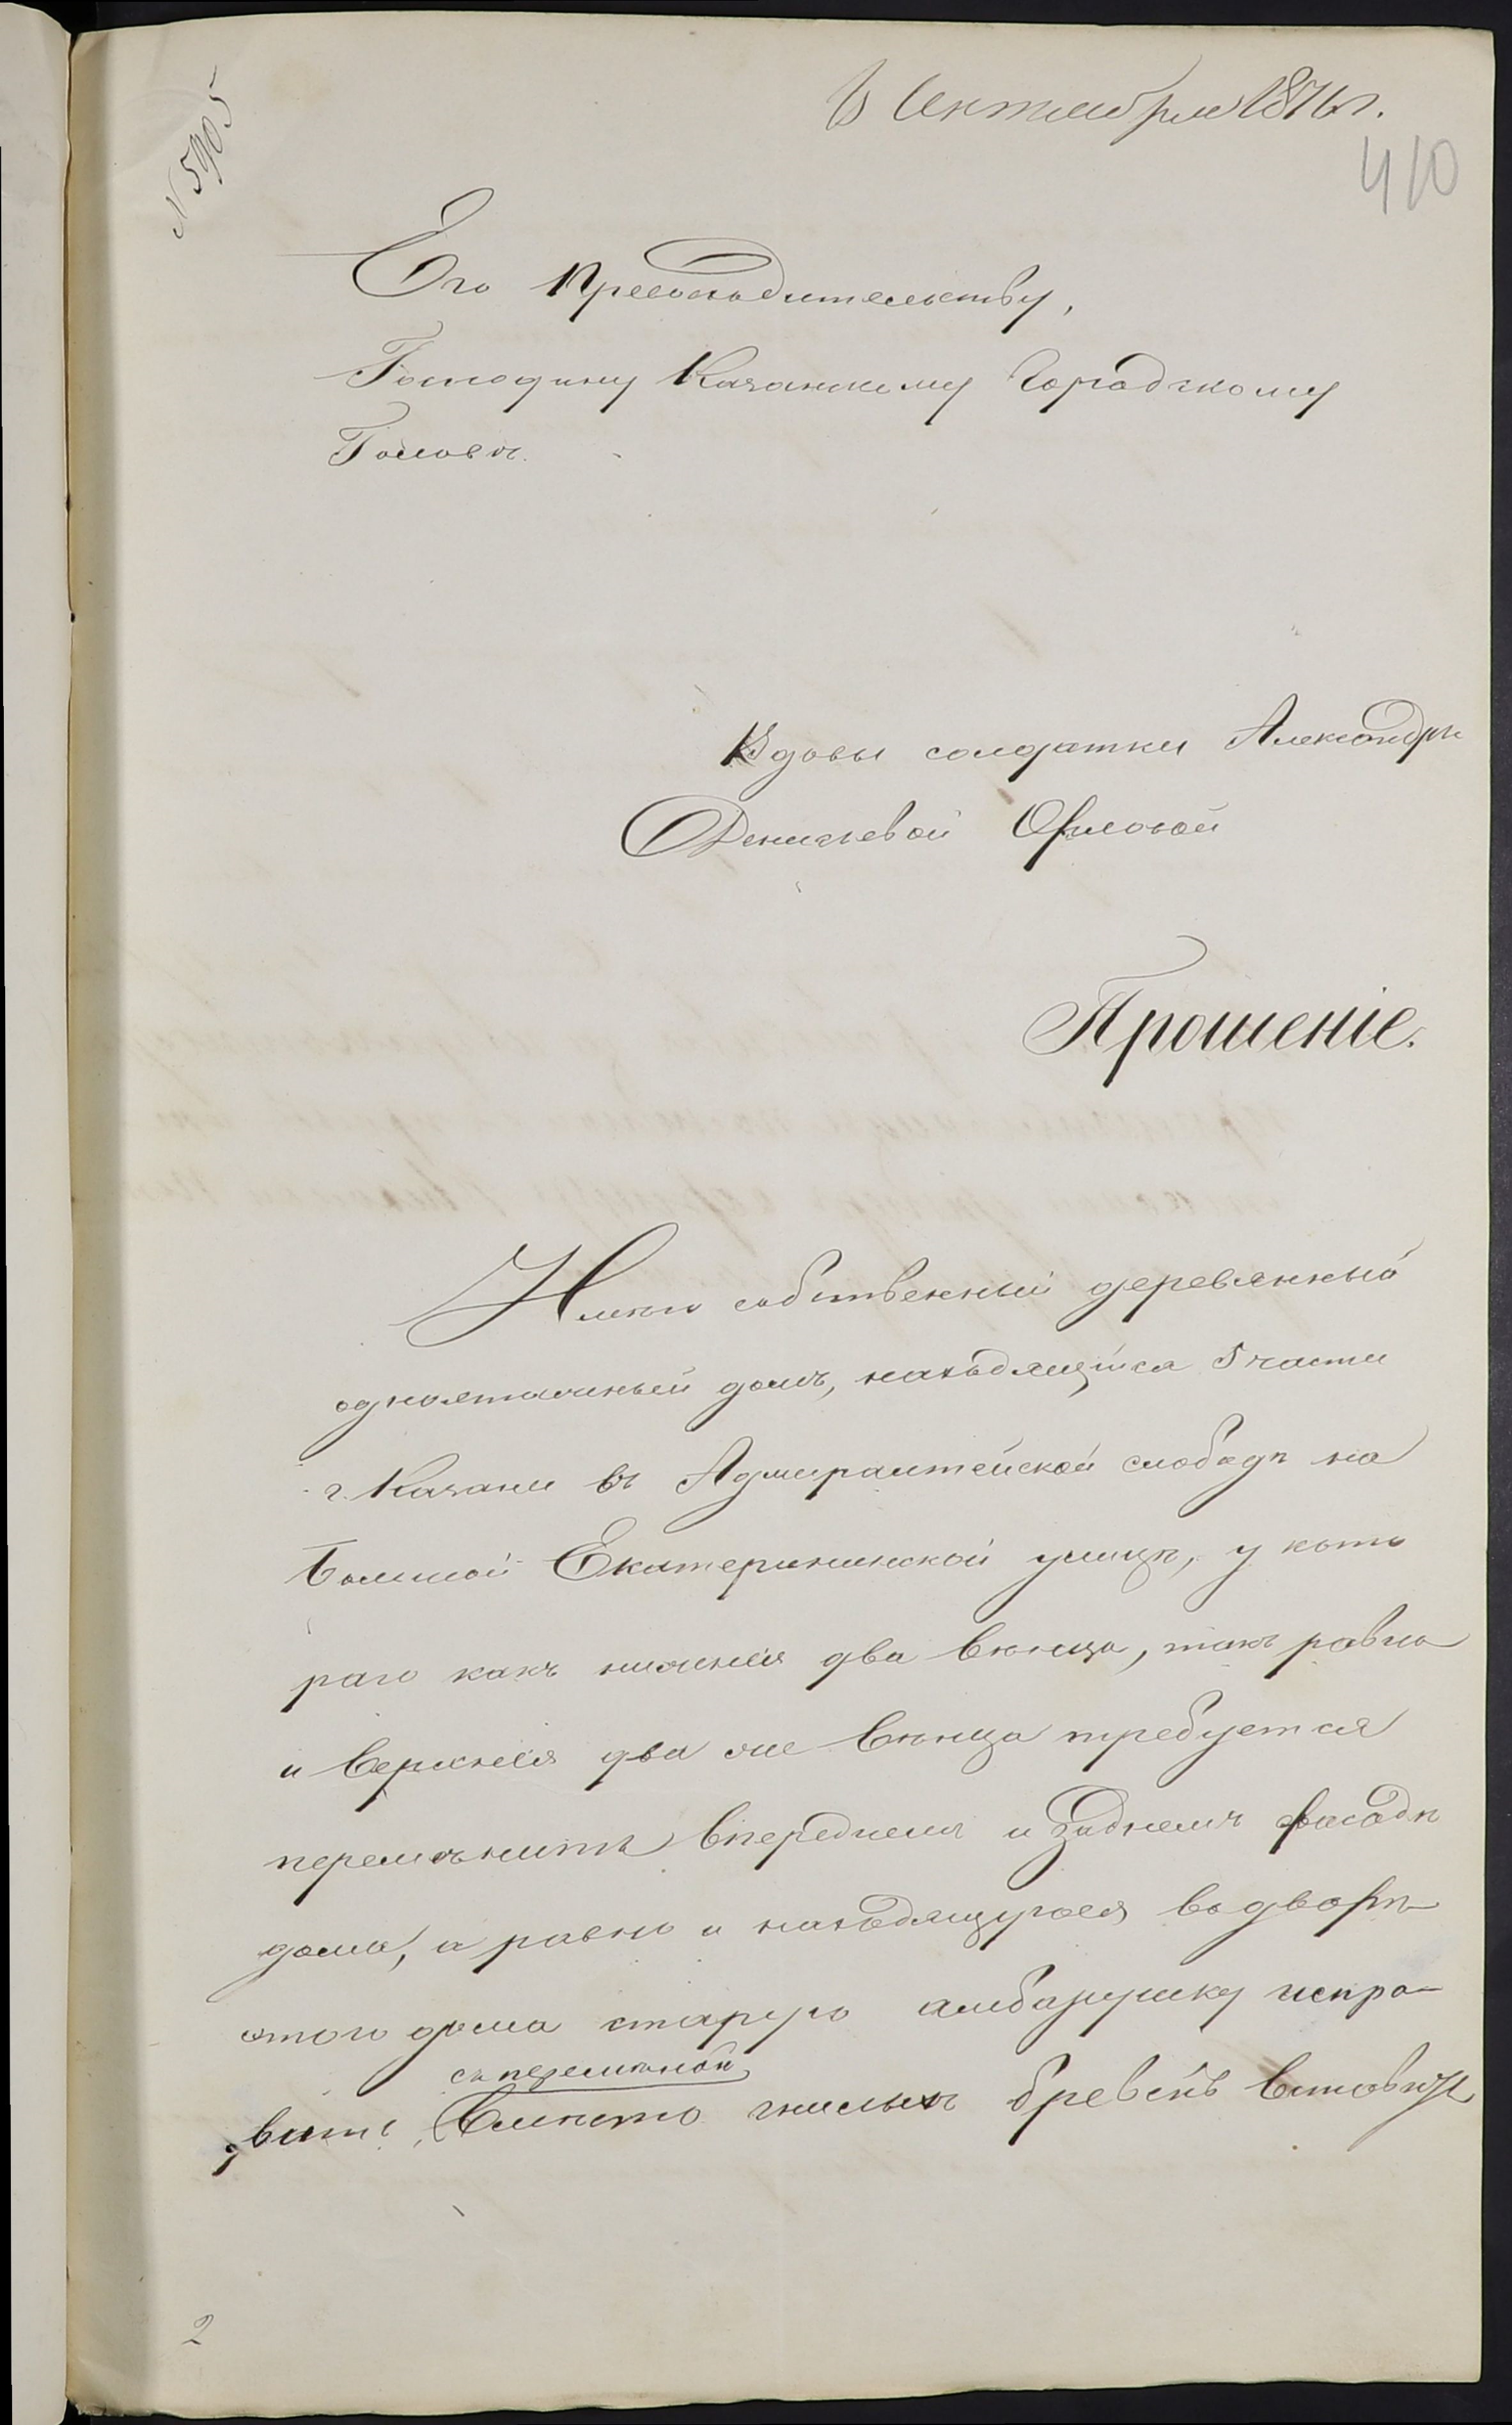 6 Октября 1876 г.
410
№ 5905
Его Превосходительству,
Господину Казанскому Городскому
Головѣ.
Вдовы солдатки Александры
Денисьевой Орловой
Прошеніе.
Имѣю собственный деревянный
одноэтажный домъ, находящійся 5 части
г. Казани въ Адмиралтейской слободѣ на
Большой Екатерининской улицѣ, у кото
раго какъ нижнія два вѣнца, такъ равно
и верхнія два же вѣнца требуется
перемѣнить впереднемъ и заднемъ фасадѣ
дома, а равно и находящуюся во дворѣ
этого дома старую амбарушку испра-
съ перемѣной
вить, вмѣсто гнилыхъ бревенъ
2